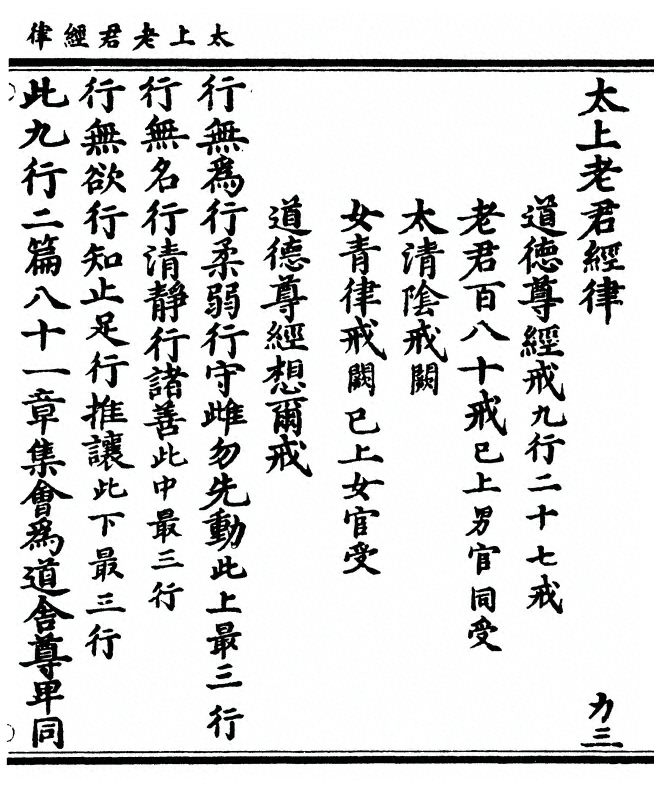 太上老君經律
太上老君經律 力三
道德尊經戒九行二十七戒
老君百八十戒已上男官同受
太清陰戒闕
女青律戒闕已上女官受
道德尊經想爾戒
行無為行柔弱行守雌勿先動此上最三行
行無名行清靜行諸善此中最三行
行無欲行知止足行推讓此下最三行
此九行二篇八十一章集會為道舍尊卑同